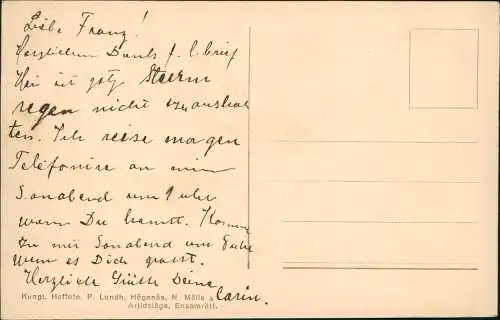 Liebe Franz!
Herzlichen Dank f. l. brief
Hier ist Sturm
regen nicht auszuhal
ten. Ich reise morgen
Telefonire an mir
Sonabend um 9 uhr
wann Du kannst. Komm
zu mir Sonabend um
wenn es Dich passt.
Herzliche Grüsse Deine
Carin.
Kungl. Hoffoto. P. Lundh, Höganäs, N. Mölle &
Arildsläge, Ensamrätt.